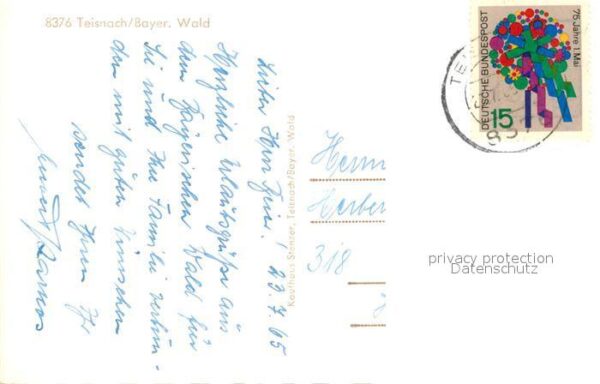 8376 Teisnach/Bayer. Wald
23.7.65
Lieber Herr
Herzliche Urlaubsgrüße aus
dem Bayerischen Wald für
Sie und Ihre Familie verbun-
den mit guten Wünschen
sendet Ihnen Ihr
Kaufhaus Stenzer, Teisnach/Bayer. Wald
Herrn
Herber
318
75 Jahre 1. Mai
DEUTSCHE BUNDESPOST
15
TE
837
privacy protection
Datenschutz